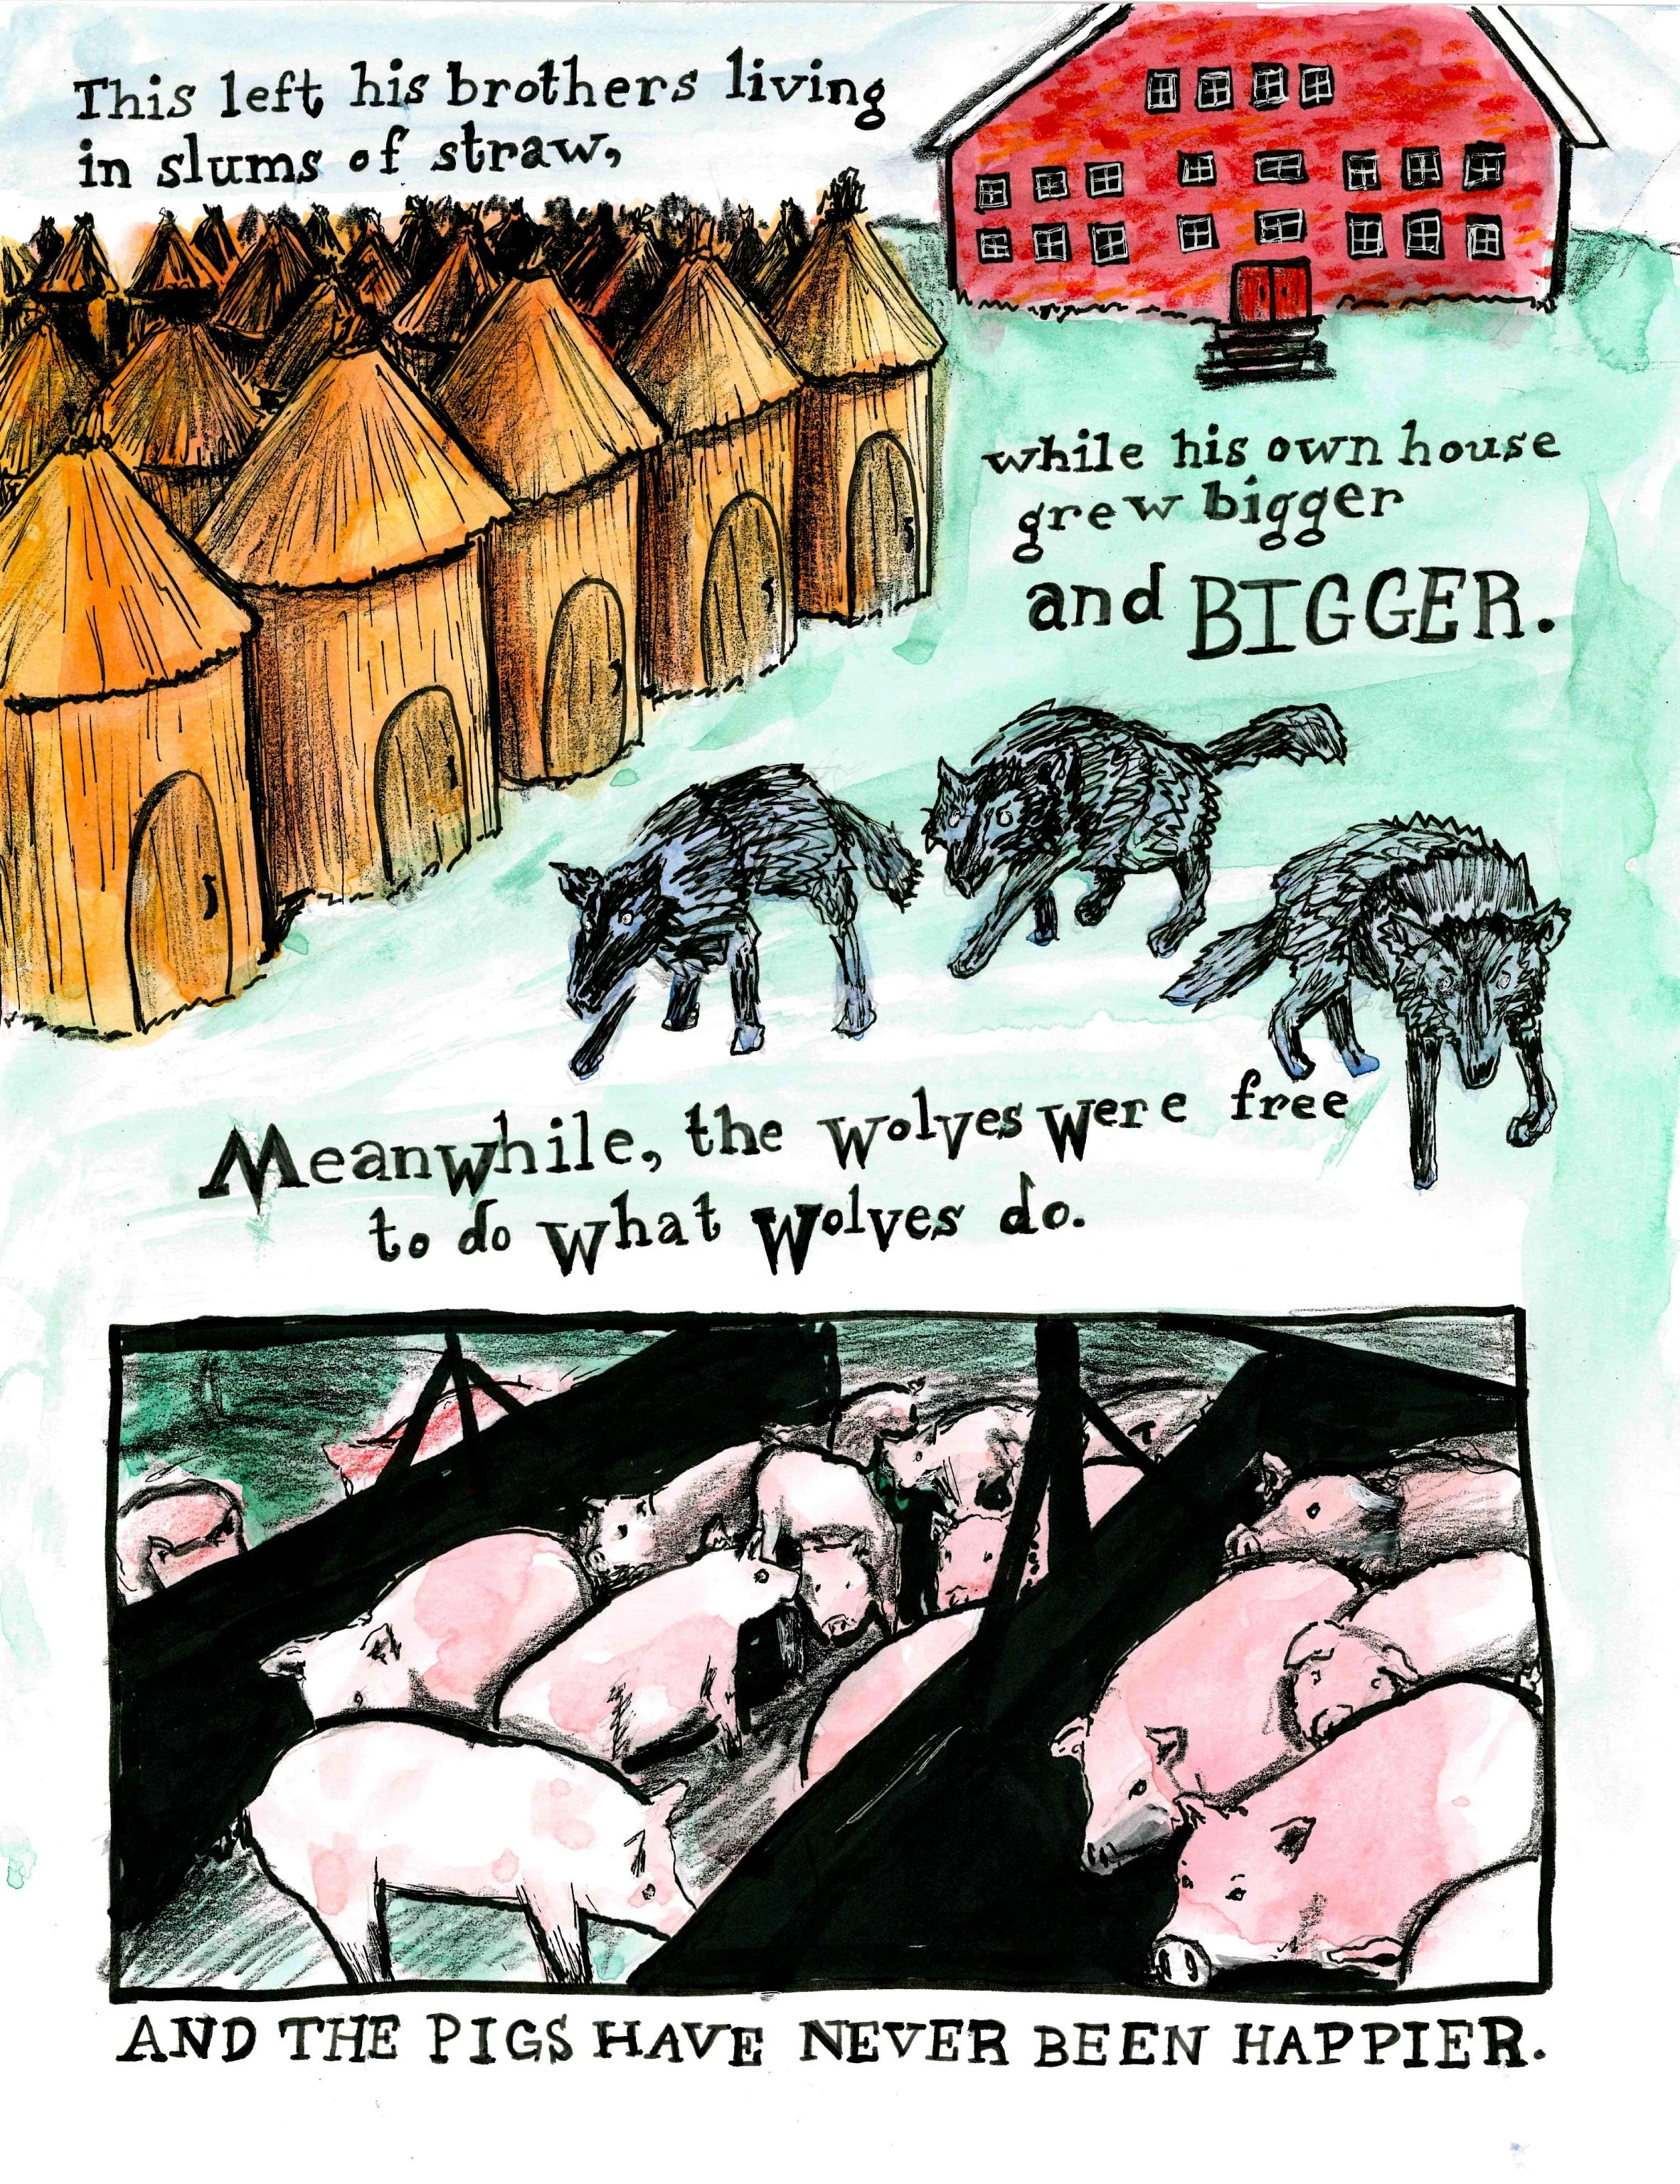 This left his brothers living
in slums of straw,
while his own house
grew bigger
and BIGGER.
Meanwhile, the wolves were free
to do what wolves do.
AND THE PIGS HAVE NEVER BEEN HAPPIER.